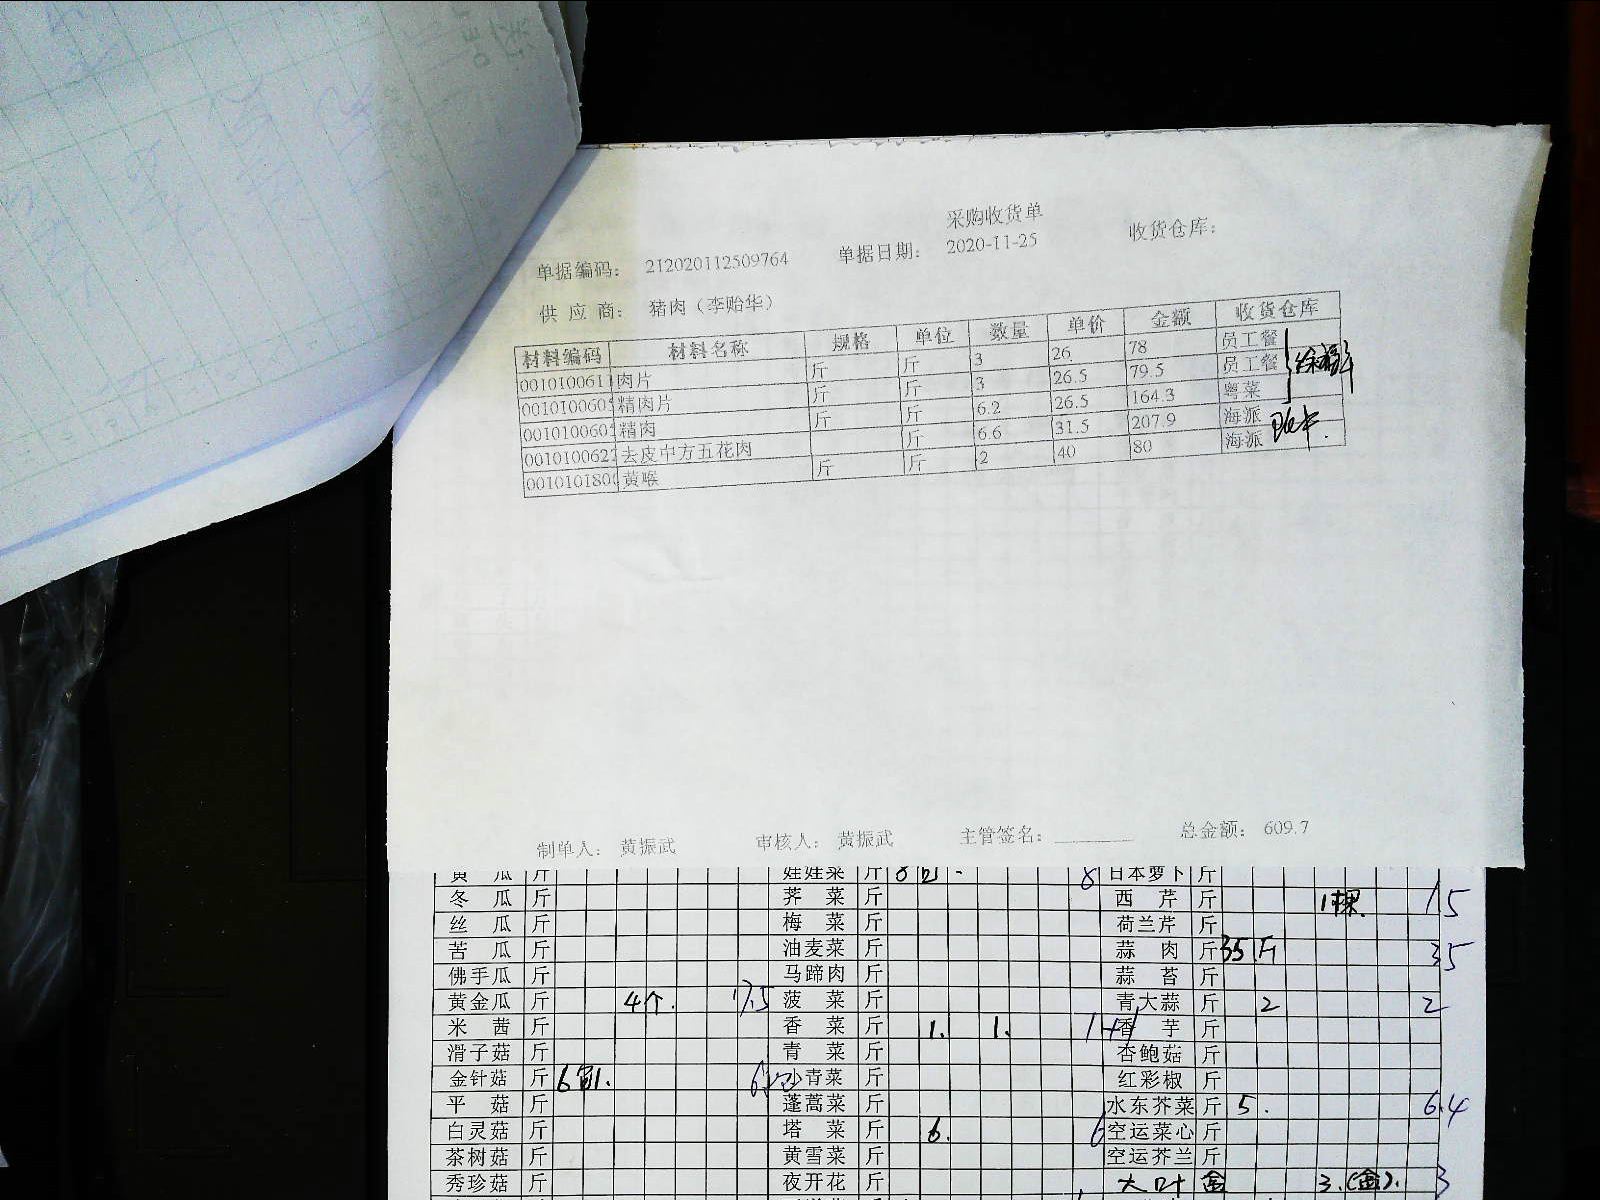 采购收货单
单据编码： 212020112509764 单据日期： 2020-11-25 收货仓库：
供 应 商： 猪肉（李贻华）
材料编码 材料名称 规格 单位 数量 单价 金额 收货仓库
001010061 肉片 斤 斤 3 26 78 员工餐
001010060 精肉片 斤 斤 3 26.5 79.5 员工餐
001010060 精肉 斤 斤 6.2 26.5 164.3 粤菜
001010062 去皮中方五花肉 斤 6.6 31.5 207.9 海派
001010180 黄喉 斤 斤 2 40 80 海派
制单人： 黄振武 审核人： 黄振武 主管签名： 总金额： 609.7
黄 瓜 斤 娃娃菜 斤 8 8 日本萝卜 斤
冬 瓜 斤 荠 菜 斤 西 芹 斤 1棵. 15
丝 瓜 斤 梅 菜 斤 荷兰芹 斤
苦 瓜 斤 油麦菜 斤 蒜 肉 斤 35斤 35
佛手瓜 斤 马蹄肉 斤 蒜 苔 斤
黄金瓜 斤 4个. 17.5 菠 菜 斤 青大蒜 斤 2 2
米 茜 斤 香 菜 斤 1. 1. 1+1 香 芋 斤
滑子菇 斤 青 菜 斤 杏鲍菇 斤
金针菇 斤 6包. 6包 小青菜 斤 红彩椒 斤
平 菇 斤 蓬蒿菜 斤 水东芥菜 斤 5. 6.4
白灵菇 斤 塔 菜 斤 6. 6 空运菜心 斤
茶树菇 斤 黄雪菜 斤 空运芥兰 斤
秀珍菇 斤 夜开花 斤 大叶 盒 3.(盒). 3